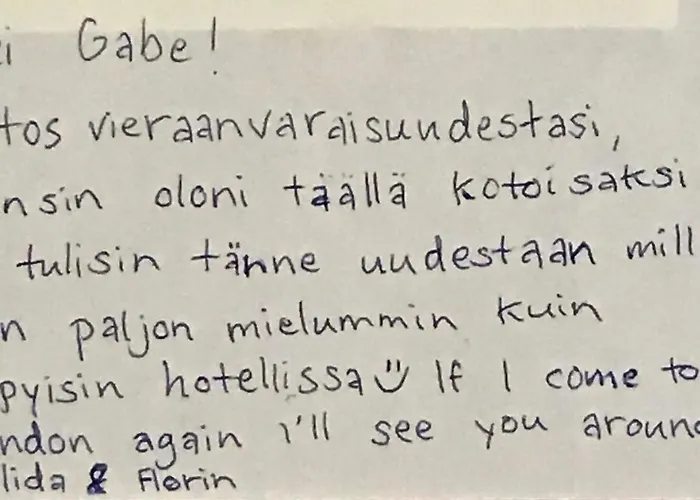 i Gabe!
tos vieraanvaraisuudestasi,
nsin oloni täällä kotoisaksi
tulisin tänne uudestaan mill
n paljon mielummin kuin
pyisin hotellissa If I come to
ndon again i'll see you around
lida & Florin